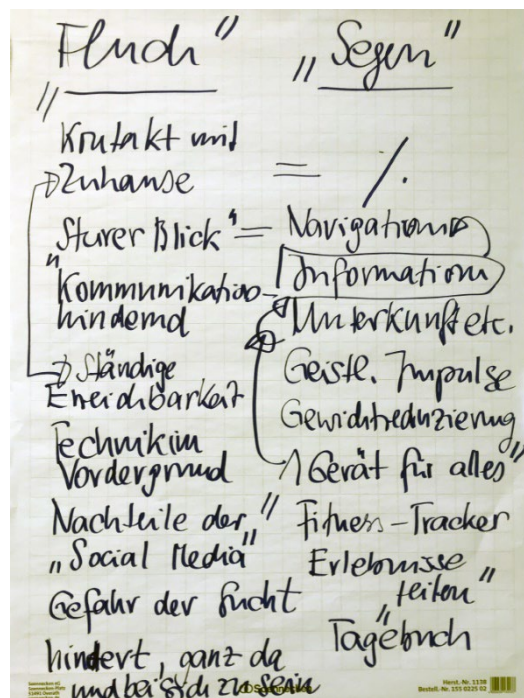 „Fluch"
„Segen"
Kontakt mit
Zuhause
= /.
„Sturer Blick" =
Kommunikations-
hindernd
Ständige
Erreichbarkeit
Technik im
Vordergrund
Nachteile der
„Social Media"
Gefahr der Sucht
hindert, ganz da
und bei sich zu sein
Navigation
Information
Unterkunft etc.
Geistl. Impulse
Gewichtreduzierung
„1 Gerät für alles"
Fitness-Tracker
Erlebnisse
„teilen"
Tagebuch
Soennecken AG
Soennecken-Platz
51491 Overath
Soennecken
Herst.-Nr. 1138
Bestell.-Nr. 155 0225 02